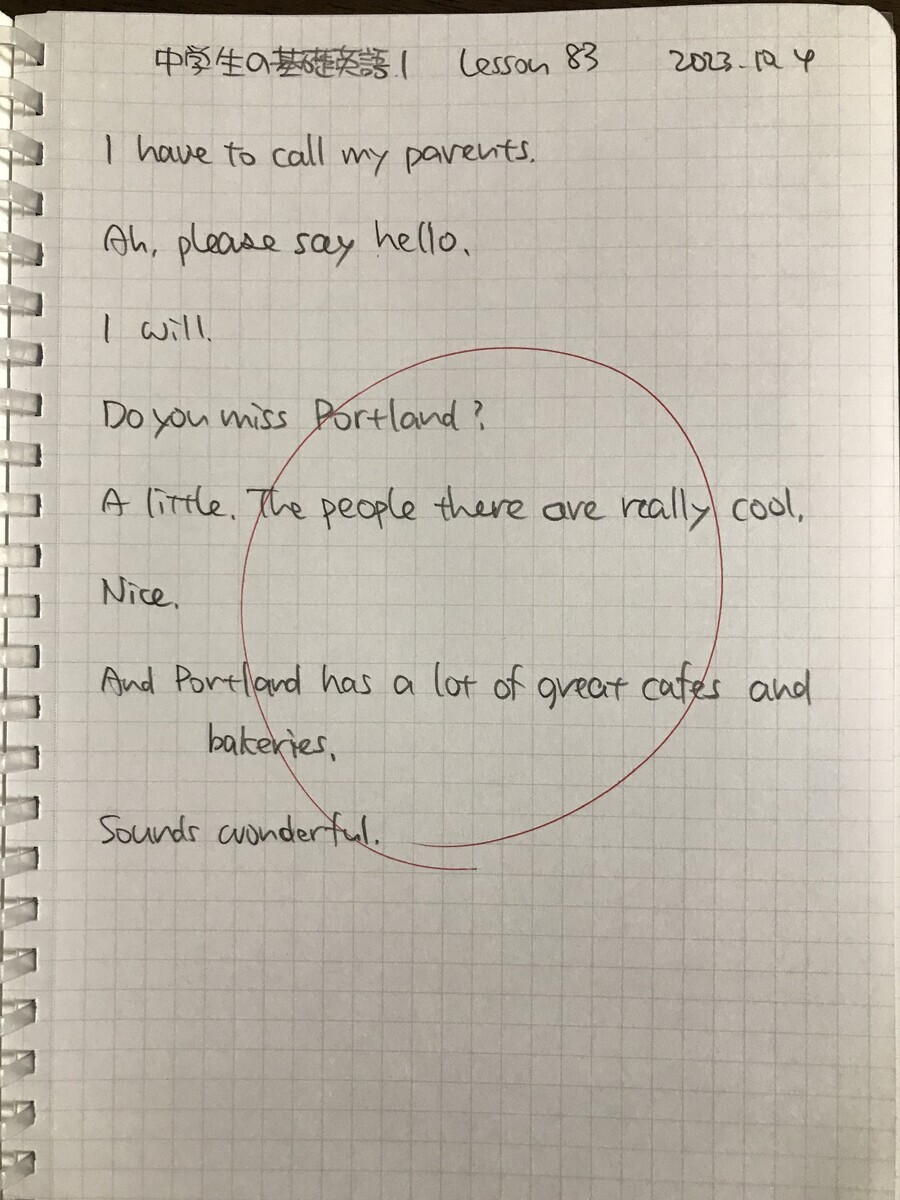 中学生の基礎英語1 Lesson 83 2023.10.4
I have to call my parents.
Ah, please say hello.
I will.
Do you miss Portland?
A little. The people there are really cool.
Nice.
And Portland has a lot of great cafes and
bakeries.
Sounds wonderful.